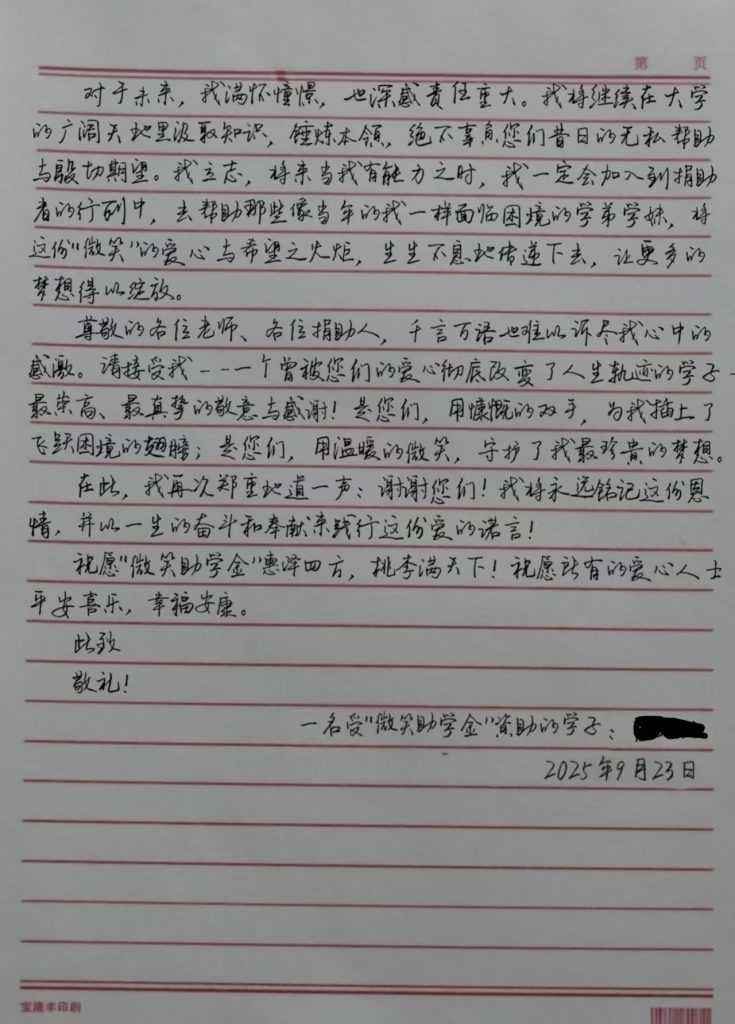 第 页
对于未来，我满怀憧憬，也深感责任重大。我将继续在大学
的广阔天地里汲取知识，锤炼本领，绝不辜负您们昔日的无私帮助
与殷切期望。我立志，将来当我有能力之时，我一定会加入到捐助
者的行列中，去帮助那些像当年的我一样面临困境的学弟学妹，将
这份“微笑”的爱心与希望之火炬，生生不息地传递下去，让更多的
梦想得以绽放。
尊敬的各位老师、各位捐助人，千言万语也难以诉尽我心中的
感激。请接受我---一个曾被您们的爱心彻底改变了人生轨迹的学子-
最崇高、最真挚的敬意与感谢！是您们，用慷慨的双手，为我插上了
飞跃困境的翅膀；是您们，用温暖的微笑，守护了我最珍贵的梦想。
在此，我再次郑重地道一声：谢谢您们！我将永远铭记这份恩
情，并以一生的奋斗和奉献来践行这份爱的诺言！
祝愿“微笑助学金”惠泽四方，桃李满天下！祝愿所有的爱心人士
平安喜乐，幸福安康。
此致
敬礼！
一名受“微笑助学金”资助的学子：
2025年9月23日
宝隆丰印刷